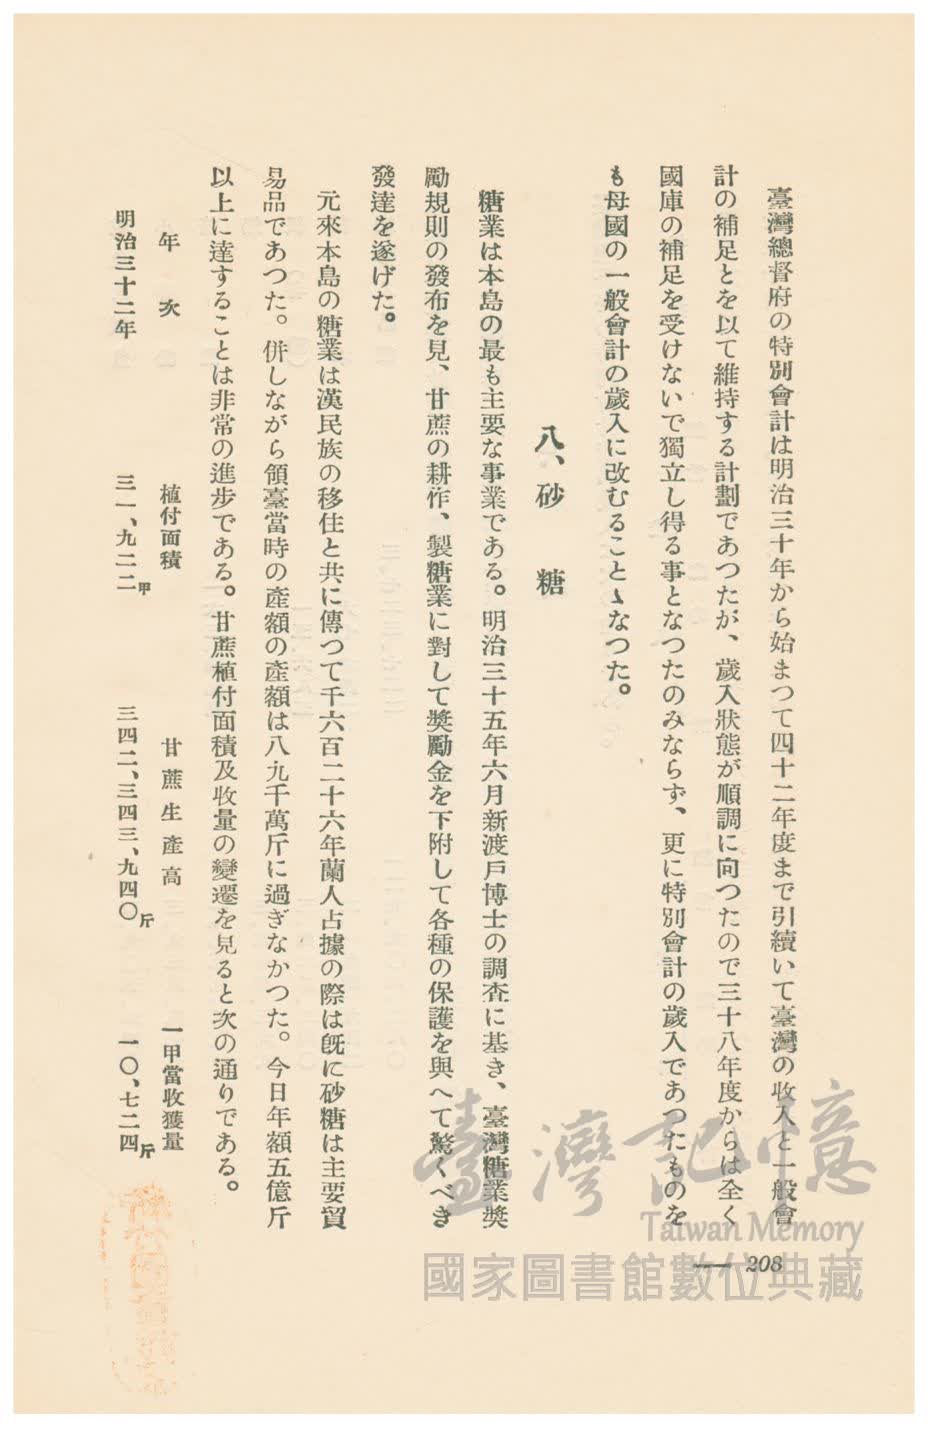 臺灣總督府の特別會計は明治三十年から始まつて四十二年度まで引續いて臺灣の收入と一般會
計の補足とを以て維持する計劃であつたが、歲入狀態が順調に向つたので三十八年度からは全く
國庫の補足を受けないで獨立し得る事となつたのみならず、更に特別會計の歲入であつたものを
も母國の一般會計の歲入に改むることゝなつた。
八、砂糖
糖業は本島の最も主要な事業である。明治三十五年六月新渡戶博士の調査に基き、臺灣糖業獎
勵規則の發布を見、甘蔗の耕作、製糖業に對して獎勵金を下附して各種の保護を與へて驚くべき
發達を遂げた。
元來本島の糖業は漢民族の移住と共に傳つて千六百二十六年蘭人占據の際は旣に砂糖は主要貿
易品であつた。併しながら領臺當時の產額の產額は八九千萬斤に過ぎなかつた。今日年額五億斤
以上に達することは非常の進步である。甘蔗植付面積及收量の變遷を見ると次の通りである。
年次 植付面積 甘蔗生產高 一甲當收獲量
明治三十二年 三一、九二二甲 三四二、三四三、九四〇斤 一〇、七二四斤
臺灣記憶
Taiwan Memory
國家圖書館數位典藏
— 208